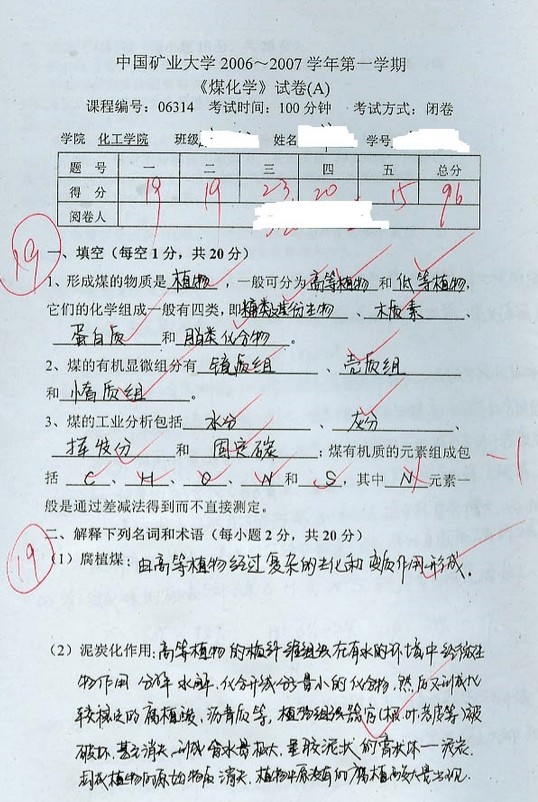 中国矿业大学 2006～2007 学年第一学期
《煤化学》试卷(A)
课程编号：06314 考试时间：100 分钟 考试方式：闭卷
学院 化工学院 班级 姓名 学号
题 号 一 二 三 四 五 总分
得 分 19 19 23 20 15 96
阅卷人
19
一、填空（每空 1 分，共 20 分）
1、形成煤的物质是 植物 ，一般可分为 高等植物 和 低等植物，
它们的化学组成一般有四类，即 糖类及其衍生物 、 木质素 、
蛋白质 和 脂类化合物 。
2、煤的有机显微组分有 镜质组 、 壳质组
和 惰质组 。
3、煤的工业分析包括 水分 、 灰分 、
挥发分 和 固定碳 ；煤有机质的元素组成包
括 C 、 H 、 O 、 N 和 S ，其中 N 元素一 -1
般是通过差减法得到而不直接测定。
二、解释下列名词和术语（每小题 2 分，共 20 分）
19
（1）腐植煤：由高等植物经过复杂的生化和变质作用形成．
（2）泥炭化作用：高等植物的植纤维组织在有水的环境中经微生
物作用 分解 水解．化合形成分子量小的化合物．然后又形成比
较稳定的腐植酸、沥青质等．植物组织器官(根．叶．茎．皮等)被
破坏．甚至消失．形成含水量极大．呈胶泥状 的膏状体—泥炭．
的原始物质消失．植物中原没有的腐植酸大量出现．